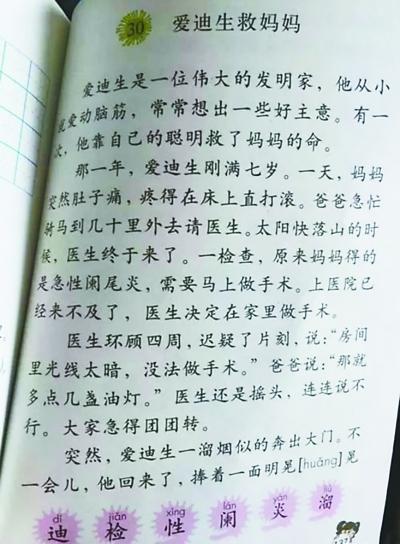 30 爱迪生救妈妈
爱迪生是一位伟大的发明家，他从小
就爱动脑筋，常常想出一些好主意。有一
次，他靠自己的聪明救了妈妈的命。
那一年，爱迪生刚满七岁。一天，妈妈
突然肚子痛，疼得在床上直打滚。爸爸急忙
骑马到几十里外去请医生。太阳快落山的时
候，医生终于来了。一检查，原来妈妈得的
是急性阑尾炎，需要马上做手术。上医院已
经来不及了，医生决定在家里做手术。
医生环顾四周，迟疑了片刻，说：“房间
里光线太暗，没法做手术。”爸爸说：“那就
多点几盏油灯。”医生还是摇头，连连说不
行。大家急得团团转。
突然，爱迪生一溜烟似的奔出大门。不
一会儿，他回来了，捧着一面明晃[huǎng]晃
dí jiǎn xìng lán yán liù
迪 检 性 阑 炎 溜
127